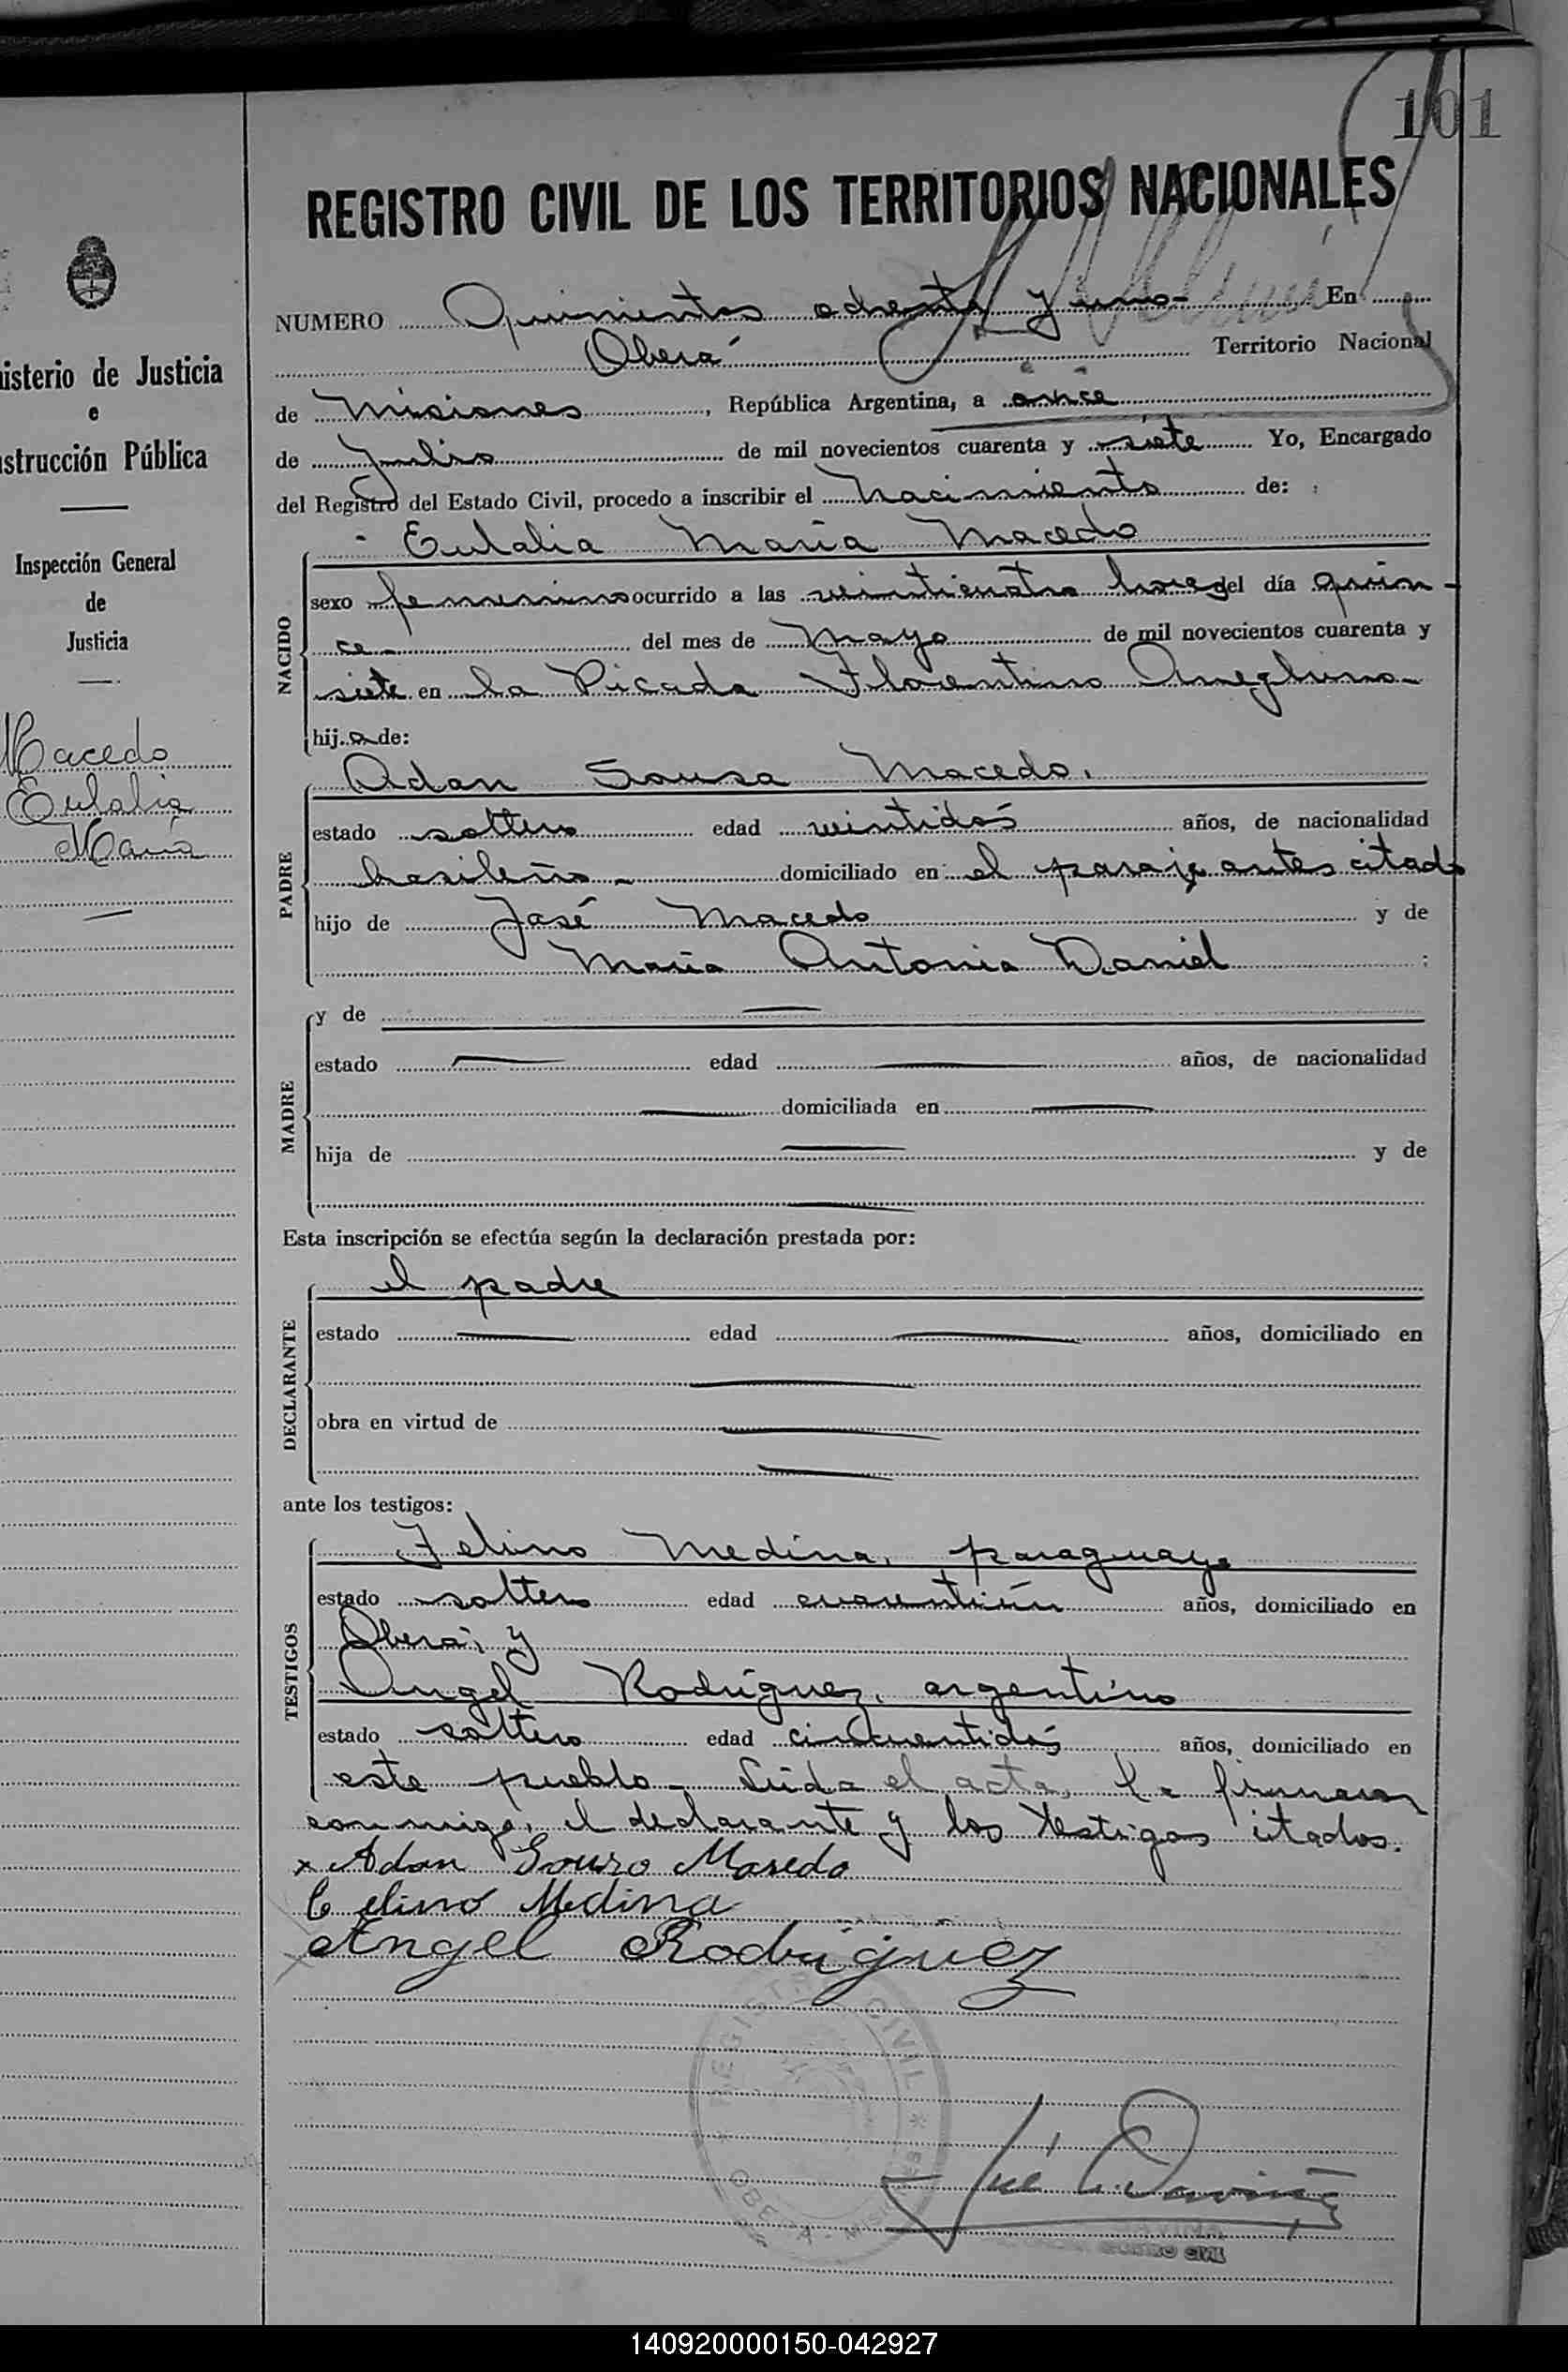 101
REGISTRO CIVIL DE LOS TERRITORIOS NACIONALES
NUMERO Quinientos ochenta y uno- En
Oberá Territorio Nacional
de Misiones, República Argentina, a once
de Julio de mil novecientos cuarenta y siete Yo, Encargado
del Registro del Estado Civil, procedo a inscribir el nacimiento de:
Eulalia Maria Macedo
NACIDO
sexo femenino ocurrido a las veinticuatro horas del día quin-
ce- del mes de Mayo de mil novecientos cuarenta y
siete en la Picada Florentino Ameghino-
hija de:
PADRE
Adan Sousa Macedo.
estado soltero edad veintidós años, de nacionalidad
brasileño- domiciliado en el paraje antes citado
hijo de José Macedo y de
Maria Antonia Daniel
MADRE
y de —
estado — edad — años, de nacionalidad
— domiciliada en —
hija de — y de
—
Esta inscripción se efectúa según la declaración prestada por:
DECLARANTE
el padre
estado — edad — años, domiciliado en
—
obra en virtud de —
—
ante los testigos:
TESTIGOS
Felino Medina, paraguayo
estado soltero edad cuarentiún años, domiciliado en
Oberá; y
Angel Rodriguez, argentino
estado soltero edad cincuentidós años, domiciliado en
este pueblo- Leida el acta, la firmaron
conmigo, el declarante y los testigos citados.
x Adan Souza Masedo
Celino Medina
Angel Rodriguez
REGISTRO CIVIL
OBERA - MISIONES
REGISTRO CIVIL
Ministerio de Justicia
e
Instrucción Pública
Inspección General
de
Justicia
Macedo
Eulalia
Maria
140920000150-042927